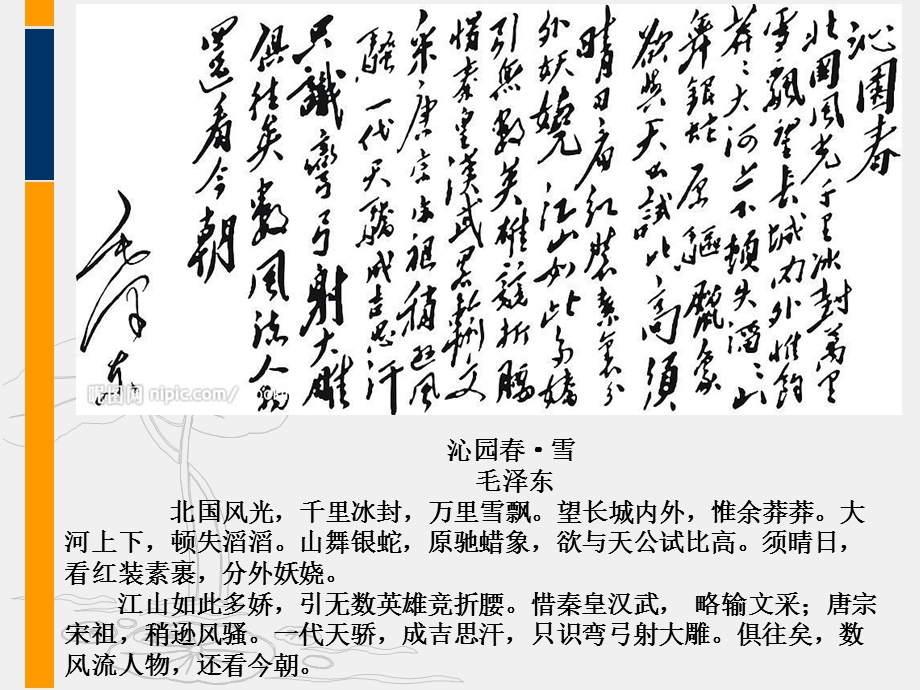 沁園春
北國風光千里冰封萬里
雪飄望長城内外惟餘
莽々大河上下頓失滔々山
舞銀蛇原驅臘象
欲與天公試比高須
晴日看紅裝素裹分
外妖嬈江山如此多嬌
引無數英雄競折腰
惜秦皇漢武略輸文
采唐宗宋祖稍遜風
騷一代天驕成吉思汗
只識彎弓射大雕
俱往矣數風流人物
還看今朝
毛澤東
昵图网 nipic.com/
沁园春·雪
毛泽东
北国风光，千里冰封，万里雪飘。望长城内外，惟余莽莽。大
河上下，顿失滔滔。山舞银蛇，原驰蜡象，欲与天公试比高。须晴日，
看红装素裹，分外妖娆。
江山如此多娇，引无数英雄竞折腰。惜秦皇汉武， 略输文采；唐宗
宋祖，稍逊风骚。一代天骄，成吉思汗，只识弯弓射大雕。俱往矣，数
风流人物，还看今朝。